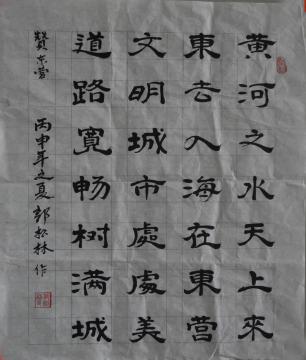 黄河之水天上來
東去入海在東营
文明城市處處美
道路寬畅树满城
贊东营
丙申年之夏郭松林作